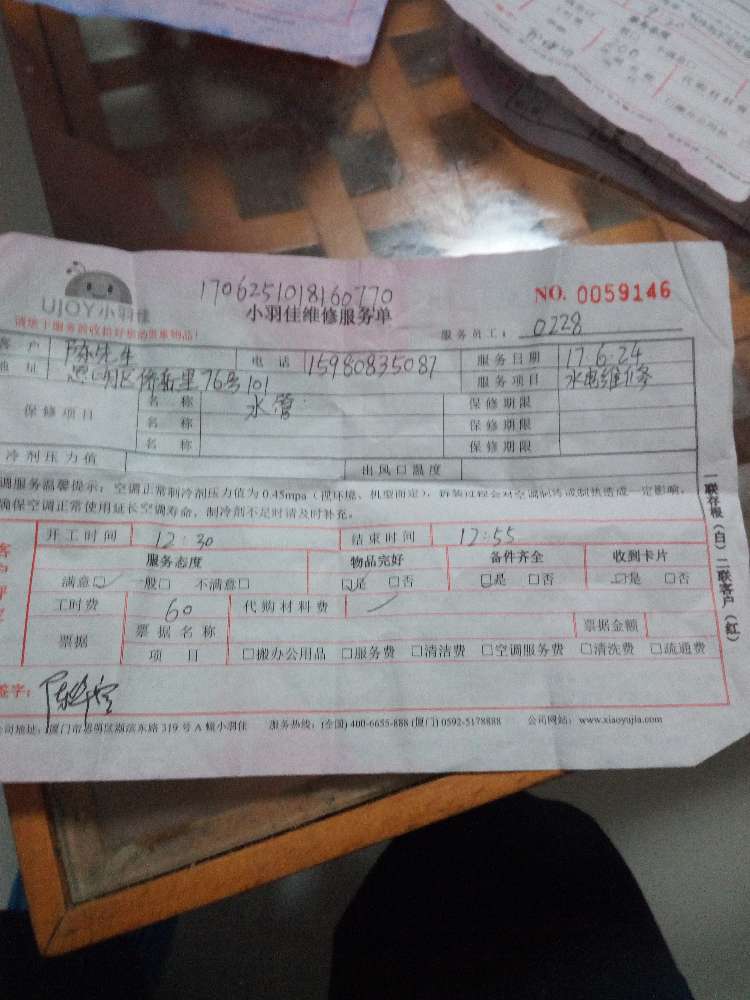 1706251018160770
UJOY小羽佳
小羽佳维修服务单
NO. 0059146
请您于服务前收拾好您的贵重物品!
服务员工: 0228
客户 陈先生 电话 15980835087 服务日期 17.6.24
地址 思明区侨岳里76号101 服务项目 水电维修
保修项目 名称 水管 保修期限
名称 保修期限
名称 保修期限
冷剂压力值 出风口温度
调服务温馨提示: 空调正常制冷剂压力值为0.45mpa(视环境、机型而定), 拆装过程会对空调制冷或制热造成一定影响,
确保空调正常使用延长空调寿命, 制冷剂不足时请及时补充。
开工时间 12:30 结束时间 12:55
服务态度 物品完好 备件齐全 收到卡片
满意□ 一般□ 不满意□ □是 □否 □是 □否 □是 □否
工时费 60 代购材料费
票据 票据名称 票据金额
项目 □搬办公用品 □服务费 □清洁费 □空调服务费 □清洗费 □疏通费
签字:
公司地址: 厦门市思明区湖滨东路319号A幢小羽佳 服务热线: (全国) 400-6655-888 (厦门) 0592-5178888 公司网站: www.xiaoyujia.com
一联存根(白)二联客户(红)